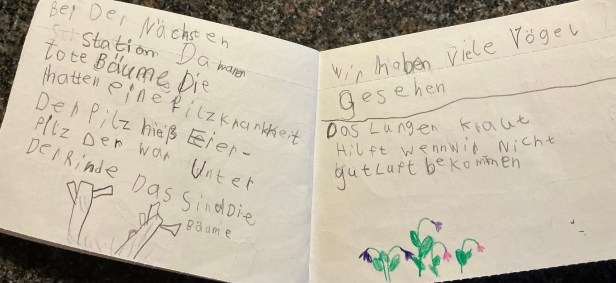 Bei Der Nächsten
Station Da waren
tote Bäume Die
hatten eine Pilzkrankheit
Der Pilz hieß Eier-
pilz Der war Unter
Der Rinde Das Sind Die
Bäume
Wir haben viele Vögel
Gesehen
Das Lungen kraut
Hilft wenn wir Nicht
gut Luft bekommen